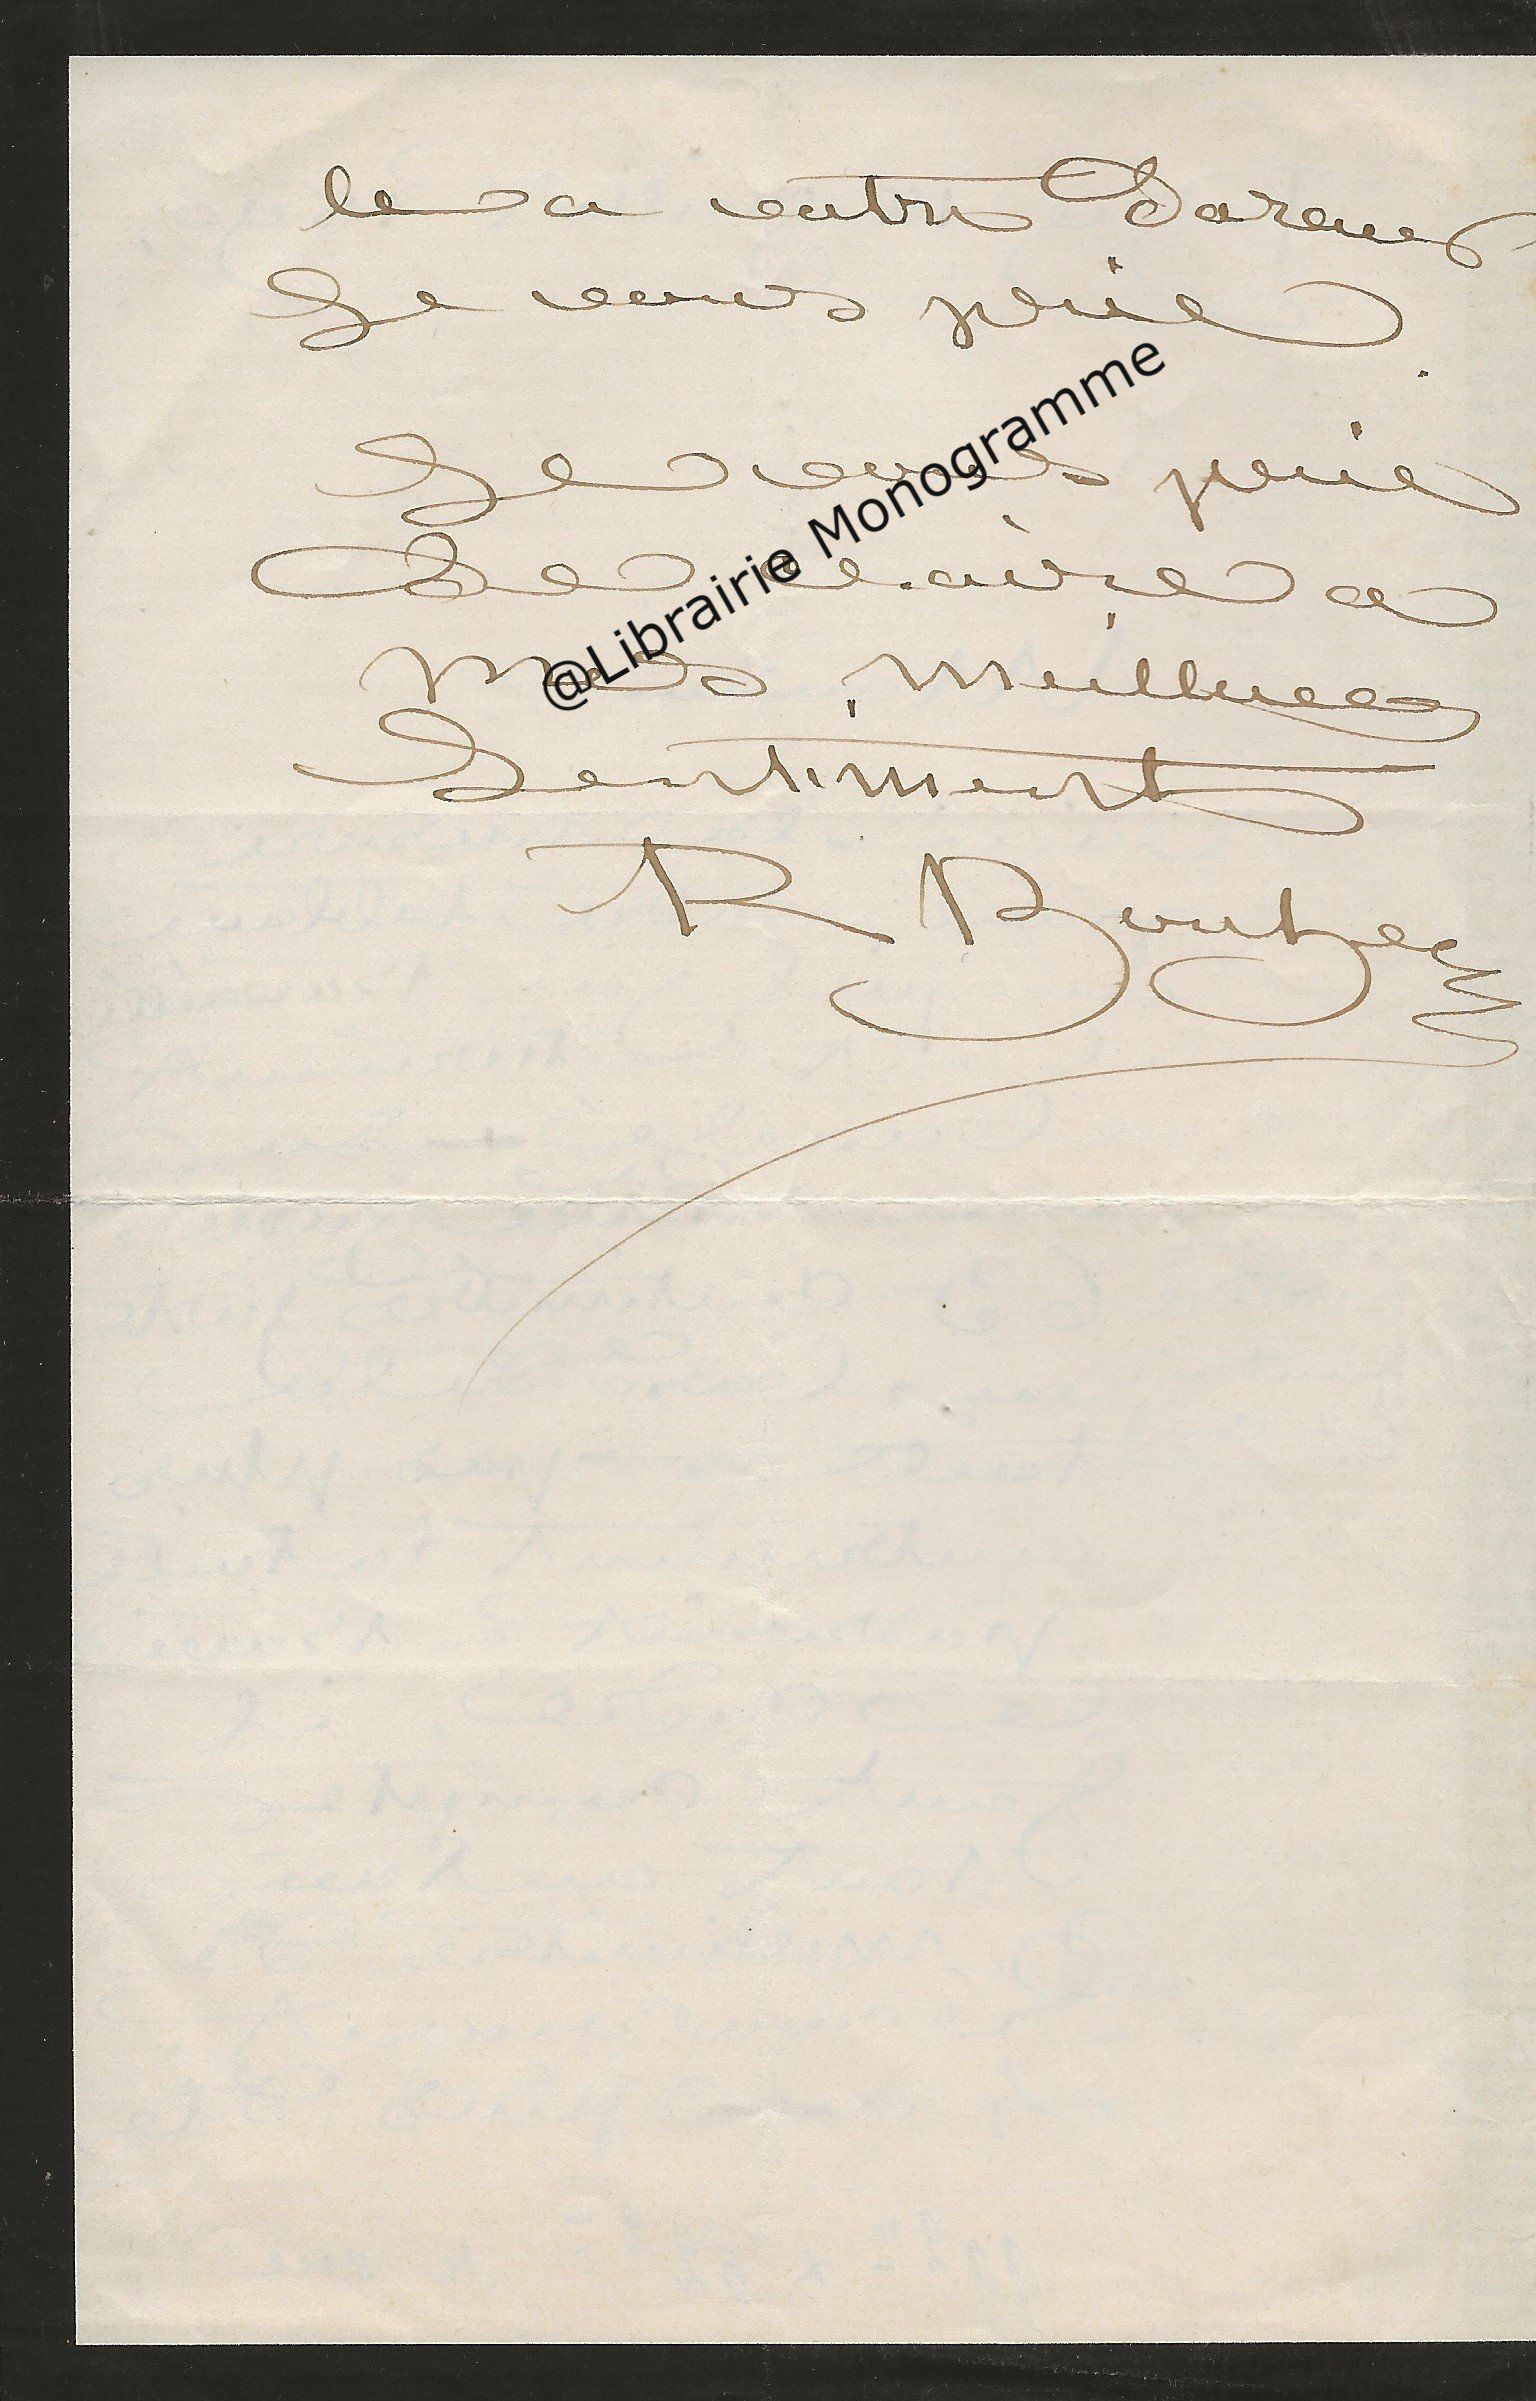 le a votre
Je vous prie
Je vous prie
De croire a
mes meilleurs
Sentiment
R Bonheur
@Librairie Monogramme